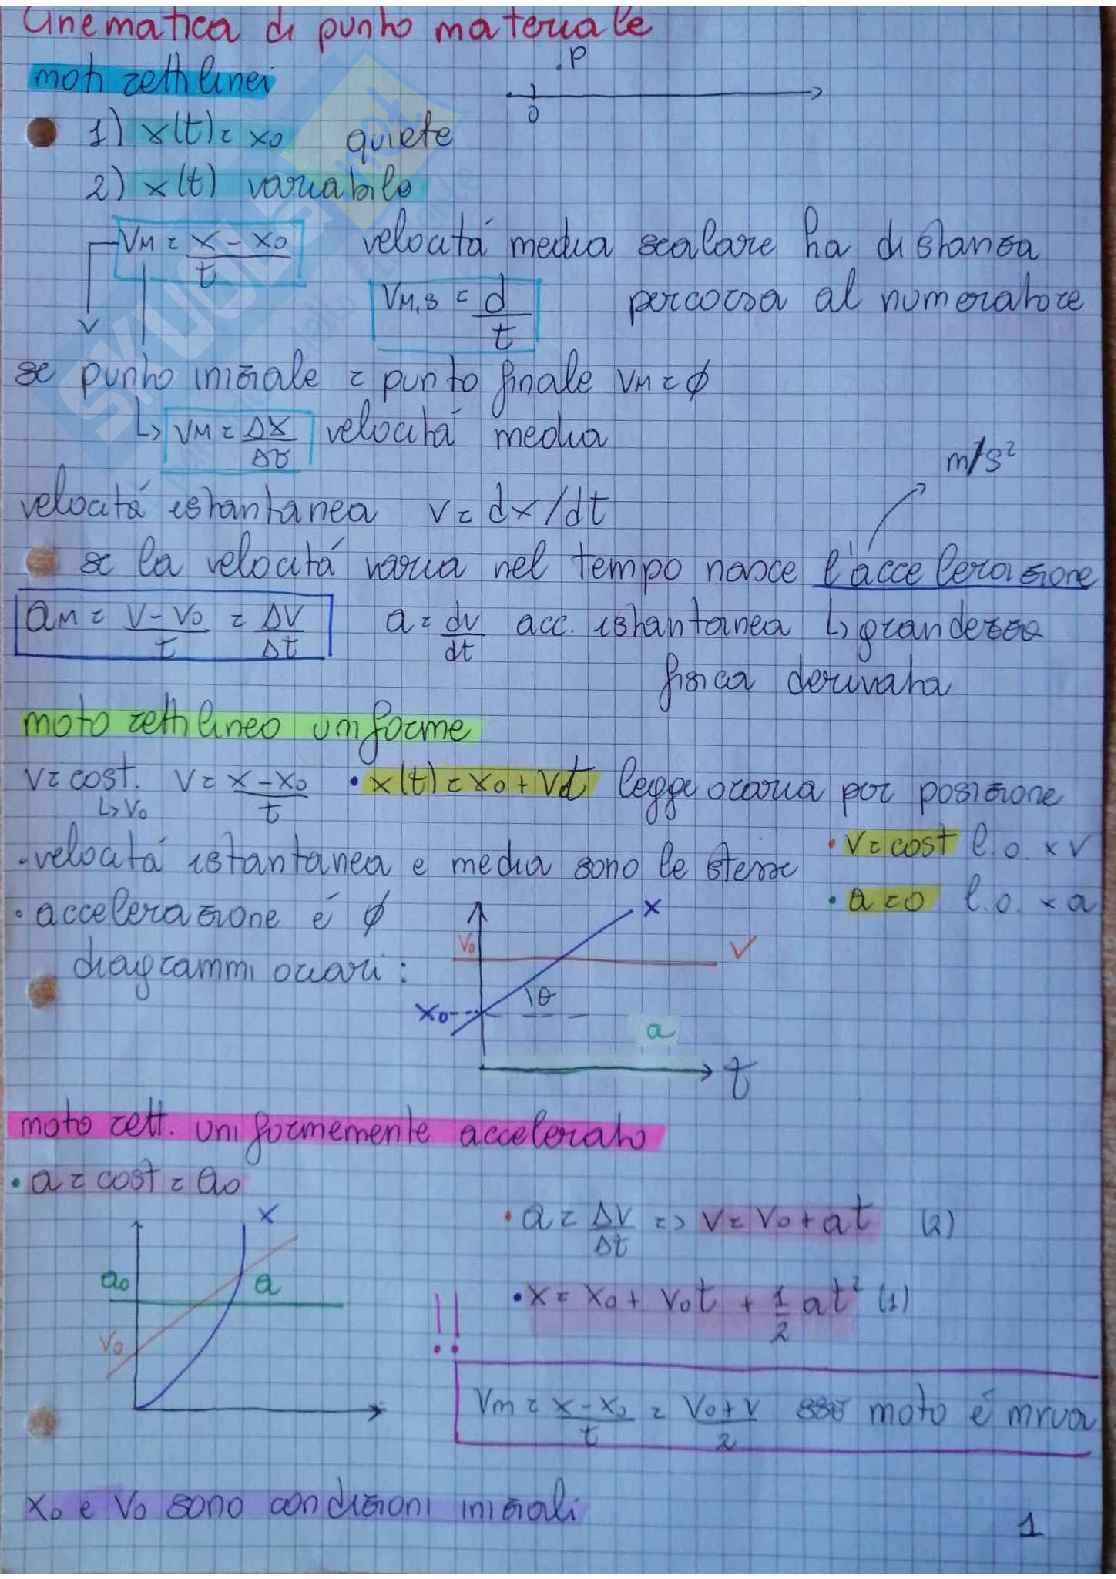 Cinematica di punto materiale
moti rettilinei
.P
0
1) x(t) = x₀ quiete
2) x(t) variabile
VM = x - x₀ / t velocitá media scalare ha distanza
VM,S = d / t percorsa al numeratore
v
se punto iniziale = punto finale VM = ϕ
↳ VM = Δx / Δt velocitá media
m/s²
velocitá istantanea v = dx/dt
se la velocitá varia nel tempo nasce l'accelerazione
aM = v - v₀ / t = Δv / Δt a = dv / dt acc. istantanea ↳ grandezza
fisica derivata
moto rettilineo uniforme
v = cost. v = x - x₀ / t • x(t) = x₀ + vt legge oraria per posizione
↳ v₀
• velocitá istantanea e media sono le stesse • v = cost l.o. x v
• accelerazione é ϕ • a = 0 l.o. x a
diagrammi orari:
x
v₀
v
θ
x₀
a
t
moto rett. uniformemente accelerato
• a = cost = a₀
x
a₀
a
v₀
• a = Δv / Δt => v = v₀ + at (2)
• x = x₀ + v₀t + 1/2 at² (1)
!!
Vm = x - x₀ / t = v₀ + v / 2 sse moto é mrua
x₀ e v₀ sono condizioni iniziali
1